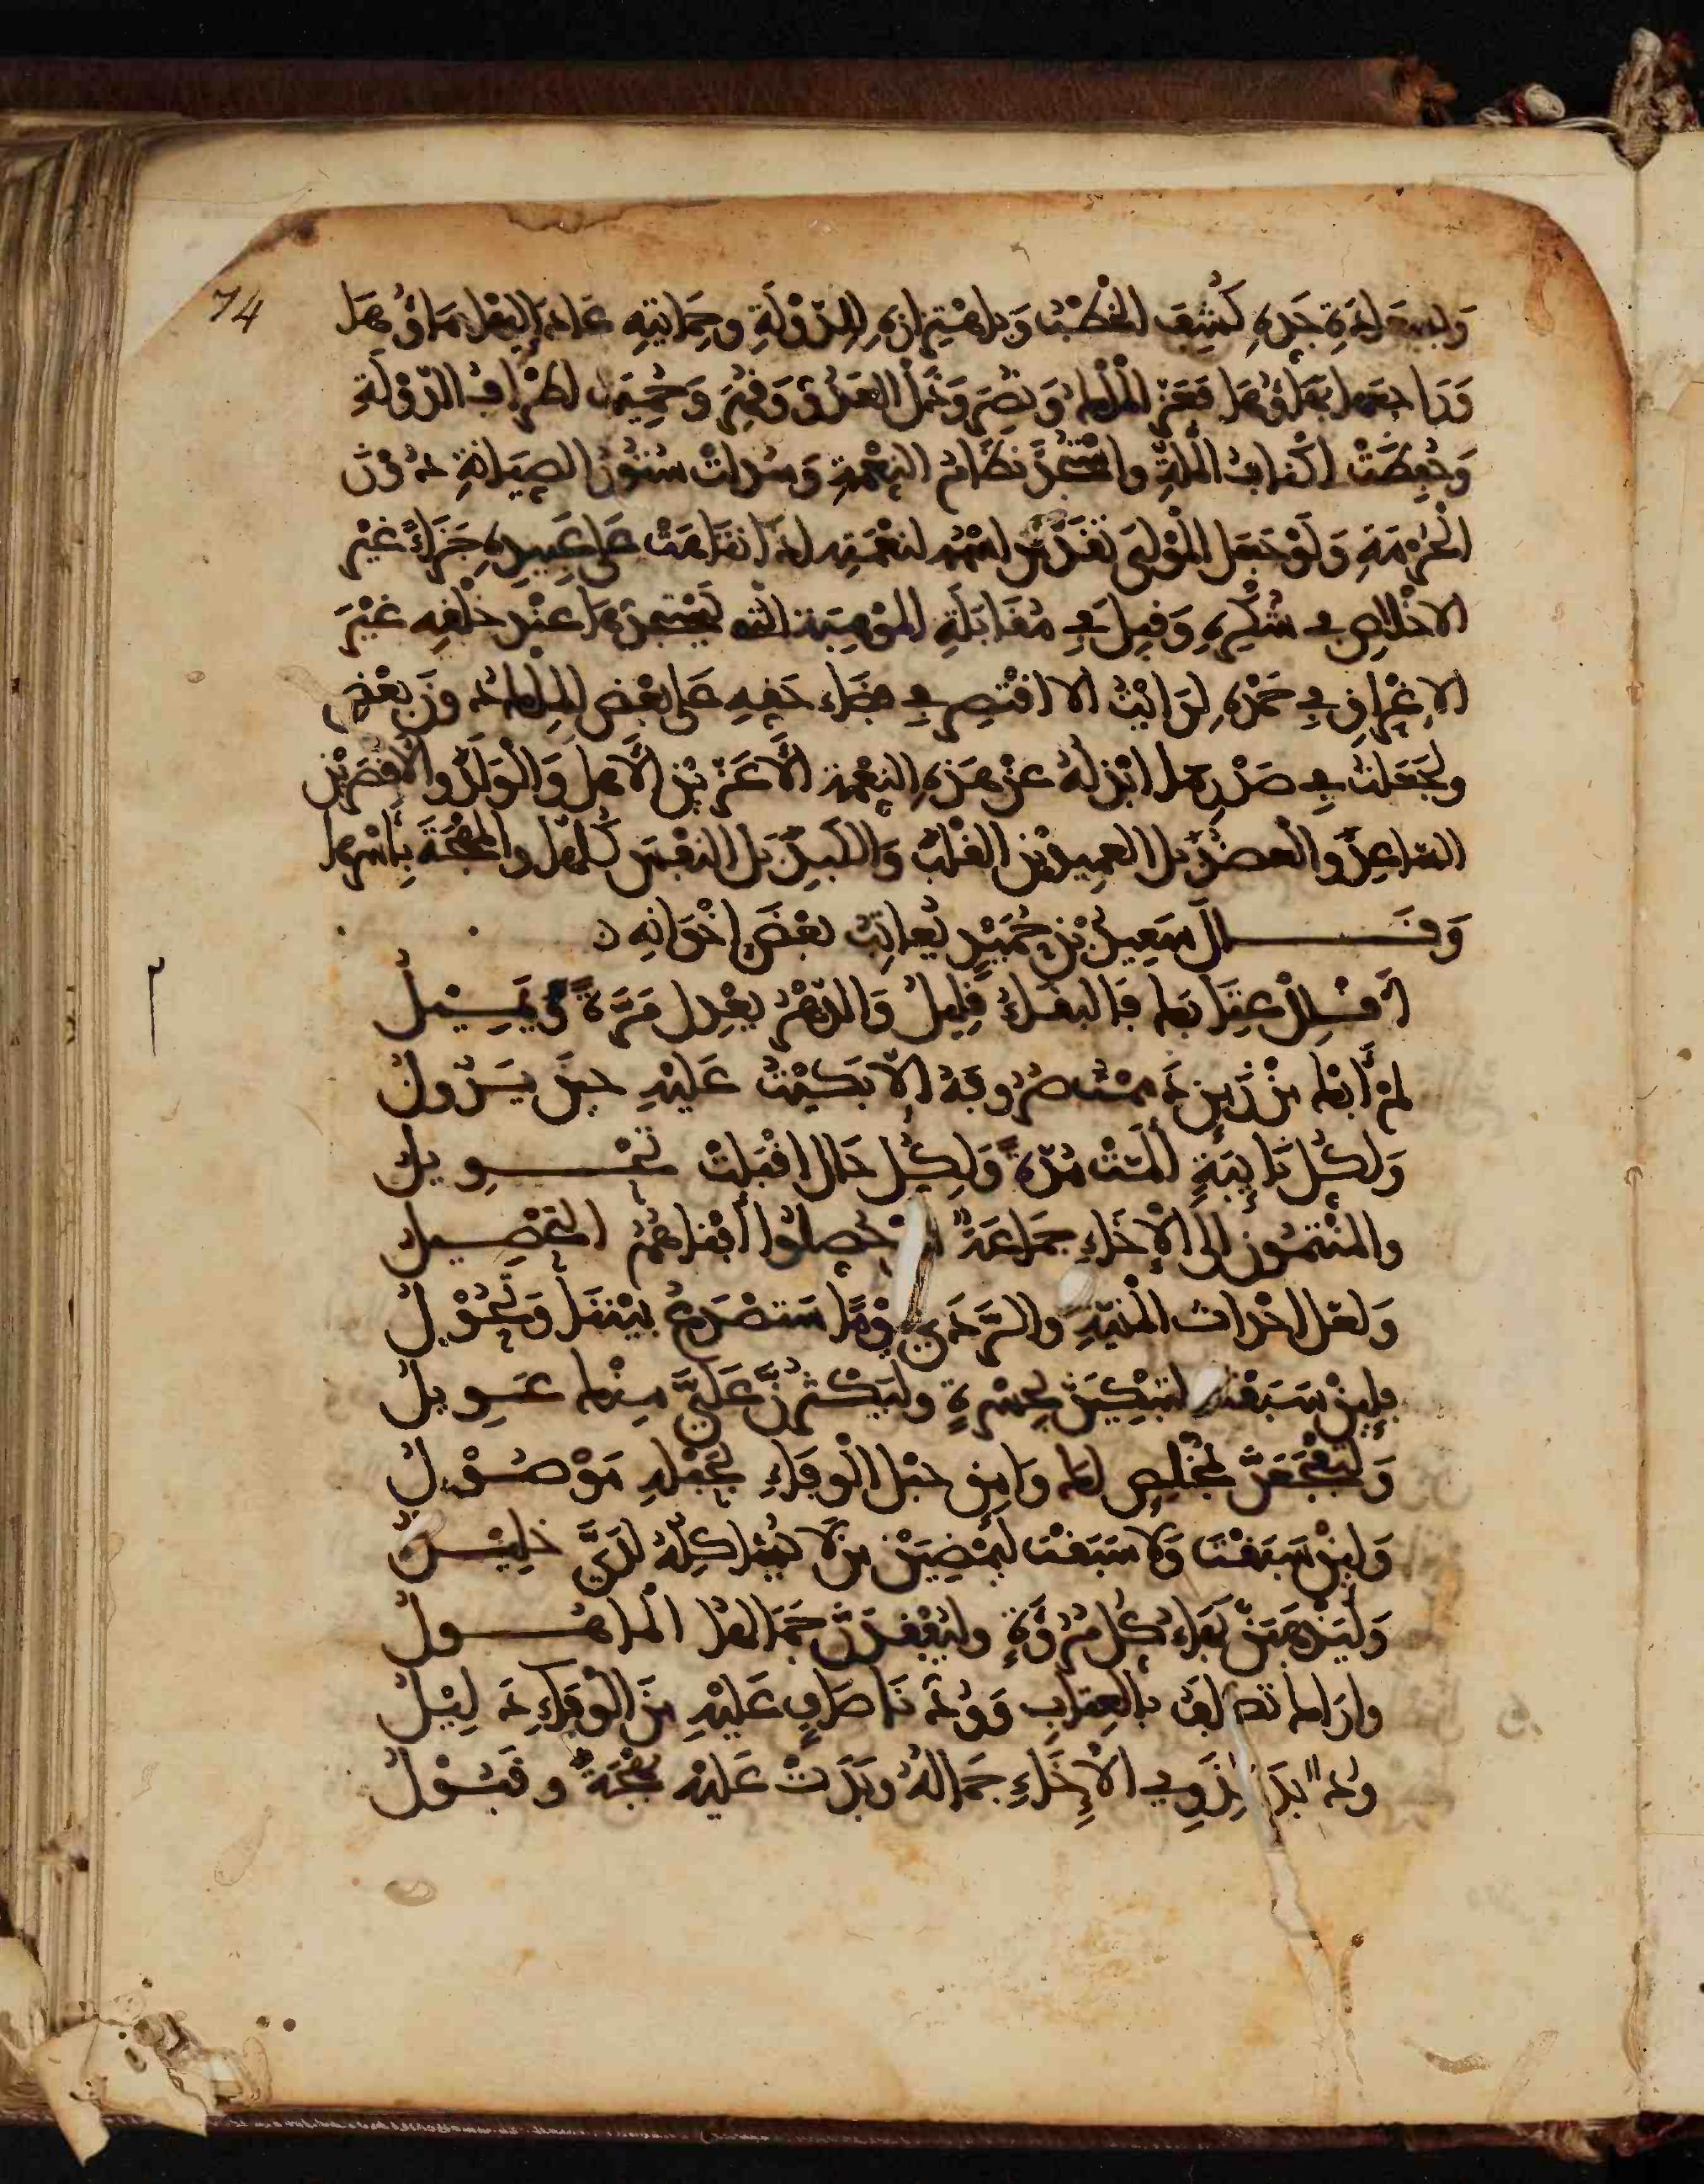 74
وبسعادة جده كشف الخطب وباهتزازه للدولة وحمايته عاد اليها ماؤها
وراجعها بهاؤها فعز الملك ونصر وذل العدو وقهر وحميت اطراف الدولة
وحفظت اكناف الملة واستمر نظام النعمة وسدلت ستور الصيانة دون
الحرمة ولو جعل المولى تقدس اسمه لنعمته اذا تناهت على عبيده جزاء غير
الاخلاص في شكره وقبل في مقابلة الموهبة التي يستجدها عند خلقه غير
الاغراق في حمده لرايت الا اقتصر في قضاء حقه على بعض الملك دون بعض
ولجعلت في صدر ما ابذله عن هذه النعمة الاعزين الاهل والولد والاقصرين
الساعد والعضد بل العميدين القلب والكبد بل النفس كلها والمهجة باسرها
وقال سعيد بن حميد يعاتب بعض اخوانه
أقلل عتابك فالبقاء قليل والدهر يعدل مرة ويميل
لم أبك من زمن ذممت صروفه إلا بكيت عليه حين يزول
ولكل نايبة ألمت مدة ولكل حال اقبلت تحويل
والمنتمون إلى الإخاء جماعة ان حصلوا أفناهم التحصيل
ولعل احداث المنية والردى يوما ستصدع بيننا وتحول
فلئن سبقت لتبكين بحسرة وليكثرن علي منك عويل
ولتفجعن بمخلص لك وامق حبل الوفاء بحبله موصول
ولئن سبقت ولا سبقت ليمضين من لا يشاكله لدي خليل
وليذهبن بهاء كل مروة وليفقدن جمالها الماهول
واراك تكلف بالعتاب وودنا صاف عليه من الوفاء دليل
ود بدا لذوي الإخاء جماله وبدت عليه بهجة وقبول